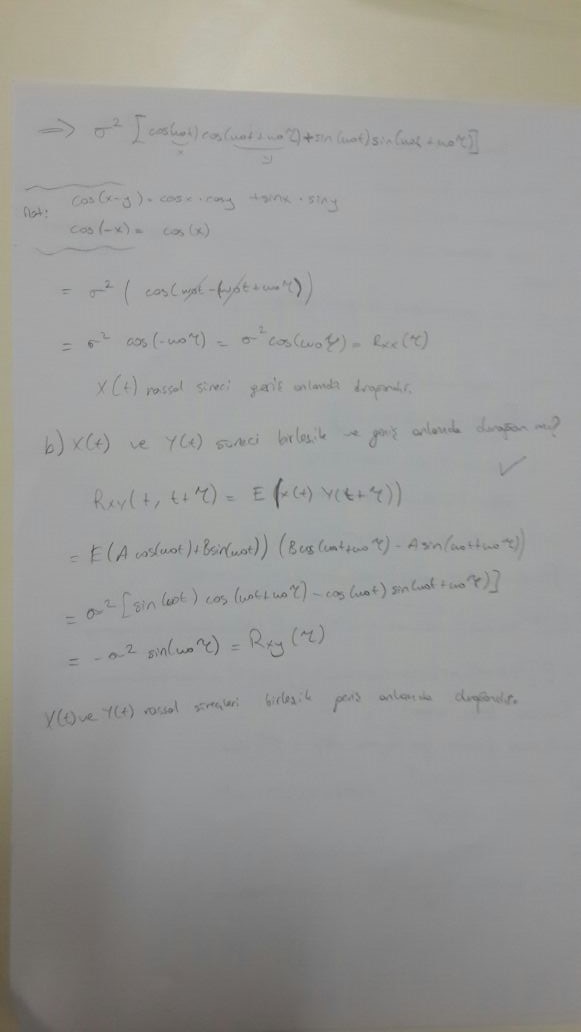 ⇒ σ² [cos(ω₀t) cos(ω₀t+ω₀τ) + sin(ω₀t) sin(ω₀t+ω₀τ)]
x y
Not: cos(x-y) = cosx . cosy + sinx . siny
cos(-x) = cos(x)
= σ² ( cos(ω₀t - (ω₀t+ω₀τ))
= σ² cos(-ω₀τ) = σ² cos(ω₀τ) = Rxx(τ)
X(t) rassal süreci geniş anlamda durağandır.
b) X(t) ve Y(t) süreci birleşik ve geniş anlamda durağan mı?
Rxy(t, t+τ) = E(x(t) Y(t+τ))
= E(A cos(ω₀t)+Bsin(ω₀t)) (Bcos(ω₀t+ω₀τ) - Asin(ω₀t+ω₀τ))
= σ² [sin(ω₀t) cos(ω₀t+ω₀τ) - cos(ω₀t) sin(ω₀t+ω₀τ)]
= -σ² sin(ω₀τ) = Rxy(τ)
X(t) ve Y(t) rassal süreçleri birleşik geniş anlamda durağandır.